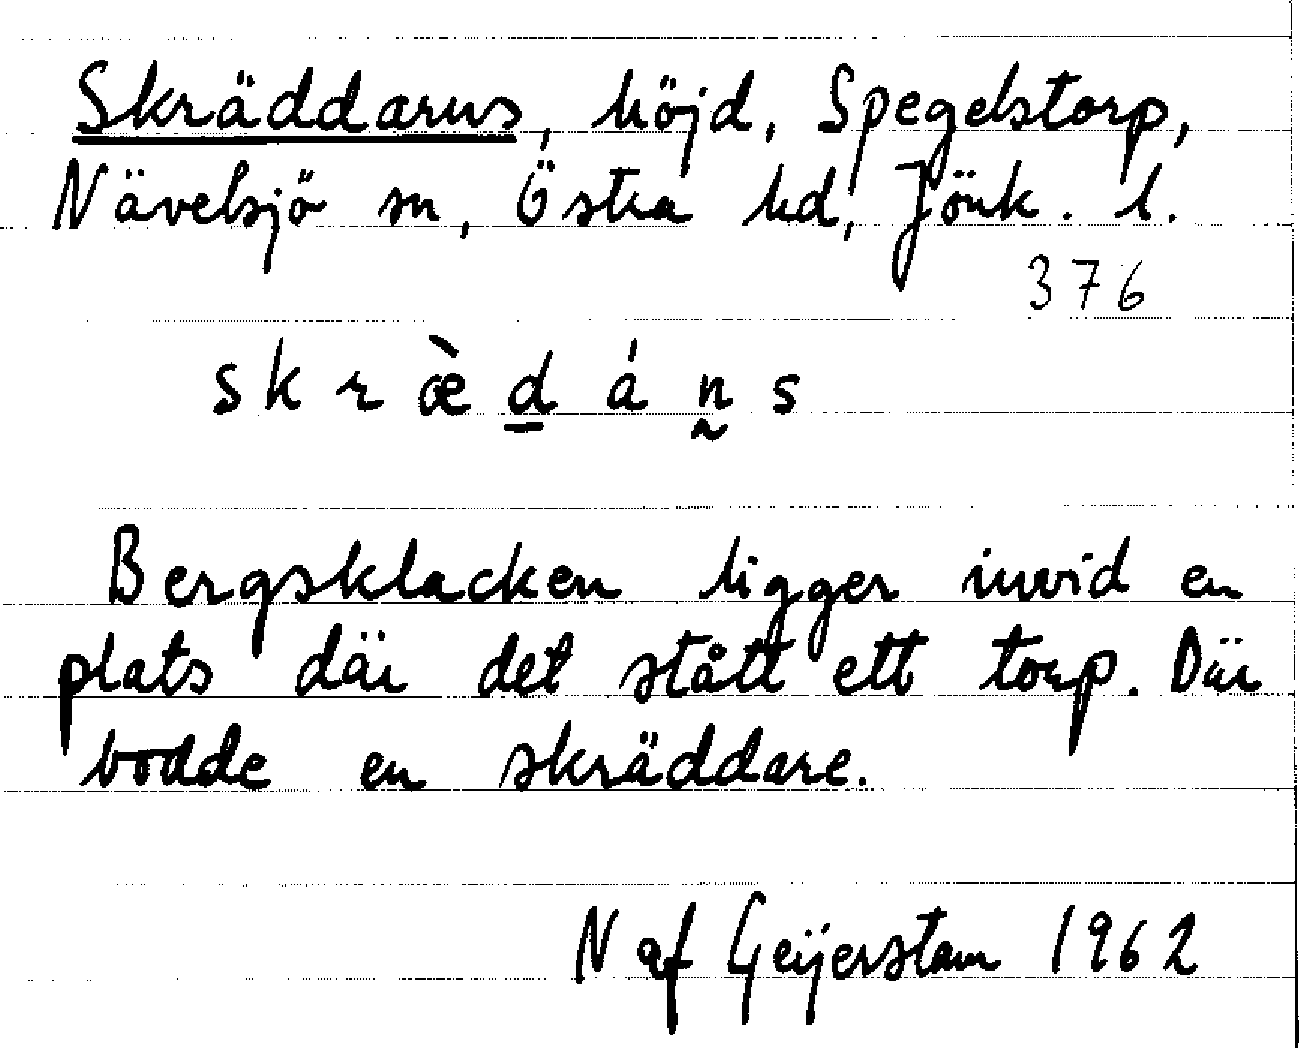 Skräddarns, höjd, Spegelstorp,
Nävelsjö sn, Östra hd, Jönk. l.
376
s k r æ̀ d̲ á n̰ s
Bergsklacken ligger invid en
plats där det stått ett torp. Där
bodde en skräddare.
N af Geijerstam 1962